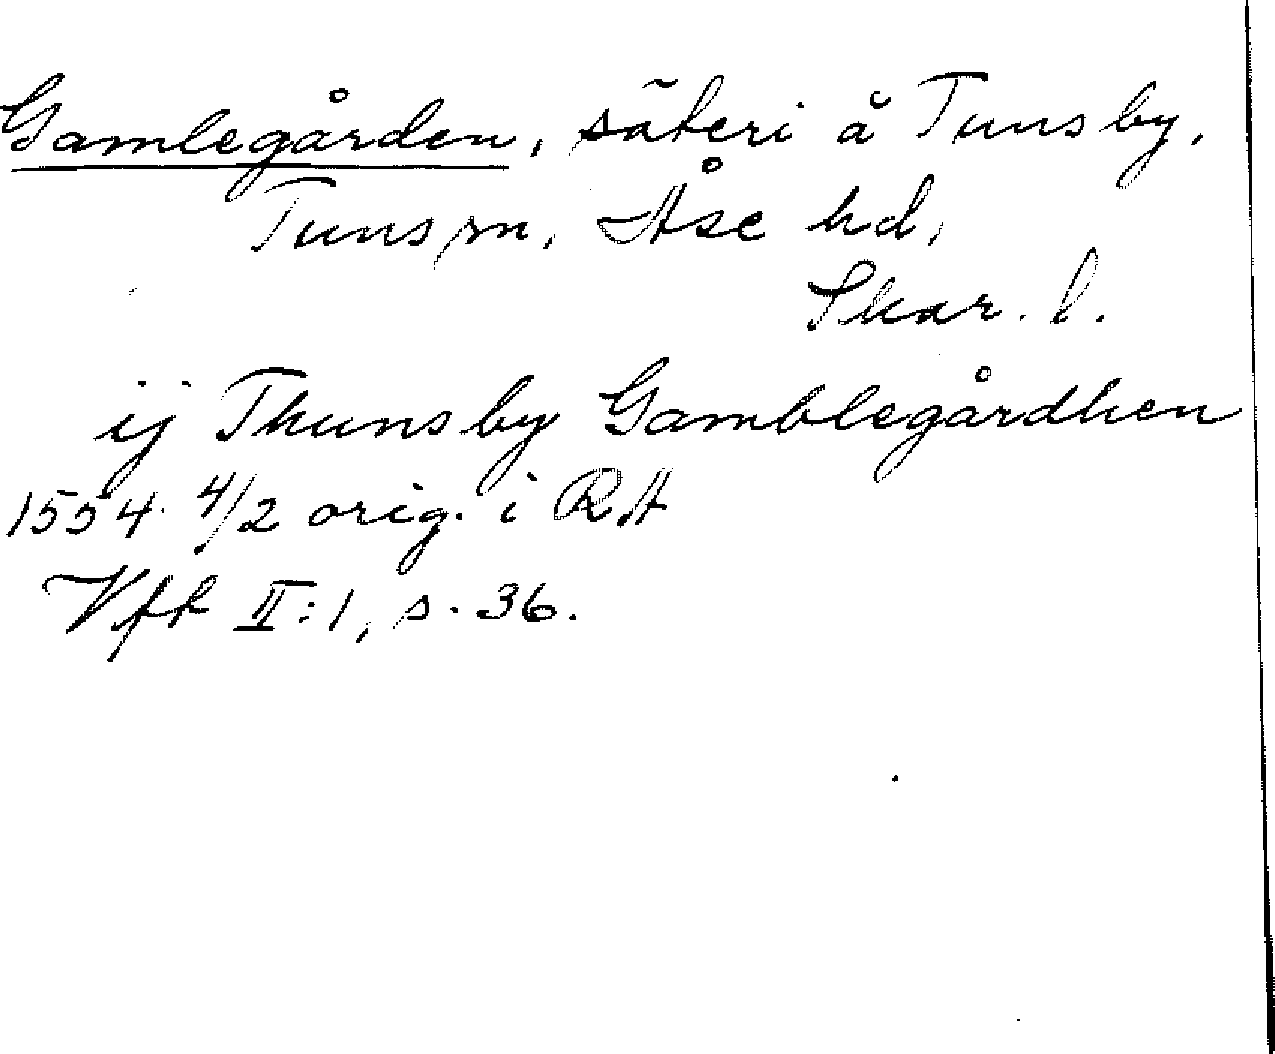 Gamlegården, säteri å Tunsby,
Tuns sn, Åse hd,
Skar. l.
ij Thunsby Gamblegårdhen
1554 4/2 orig. i RA
Vff II:1, s. 36.